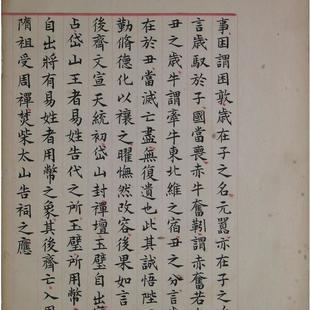 事困謂困敦歳在子之名元嚣亦在子之
言歳馭於子國當喪赤牛奮靷謂赤奮若
丑之歳牛謂牽牛東北維之宿丑之分言
在於丑當滅亡盡無復遺也此其誠悟陛
勤脩德化以禳之曜憮然改容後果如言
後齋文宣天統初岱山封禪壇玉璧自出
占岱山王者易姓告代之所玉璧所用幣
自出將有易姓者用幣之象其後齊亡入周
隋祖受周禪焚柴太山告祠之應